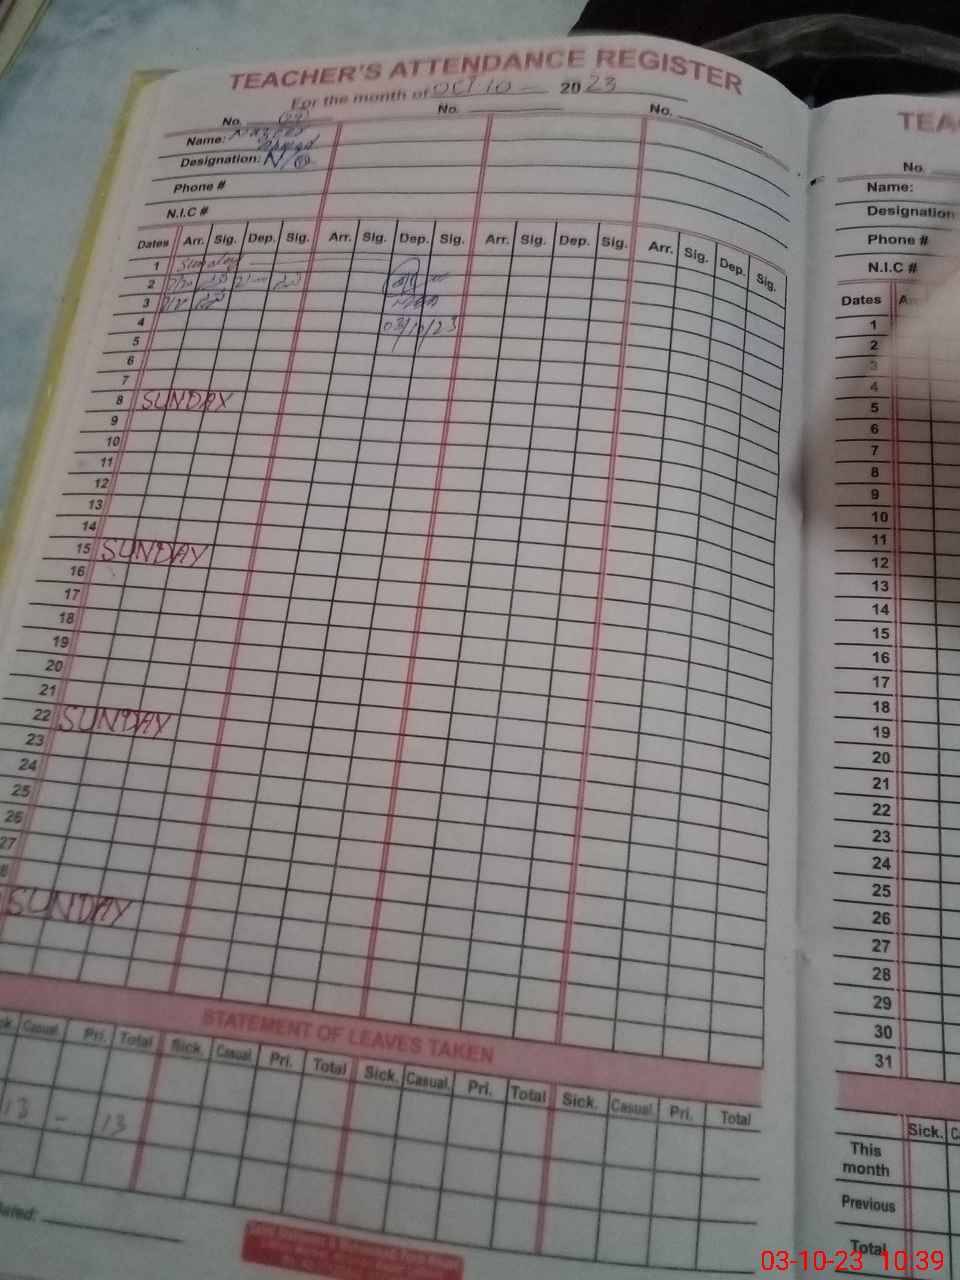 TEACHER'S ATTENDANCE REGISTER
For the month of OCT 10 - 2023
No. No. No.
Name:
Designation: N/Q
Phone #
N.I.C #
Dates Arr. Sig. Dep. Sig. Arr. Sig. Dep. Sig. Arr. Sig. Dep. Sig. Arr. Sig. Dep. Sig.
1 Sunday
2
3
4 03/10/23
5
6
7
8 SUNDAY
9
10
11
12
13
14
15 SUNDAY
16
17
18
19
20
21
22 SUNDAY
23
24
25
26
27
8
SUNDAY
STATEMENT OF LEAVES TAKEN
ck. Casual. Pri. Total Sick. Casual. Pri. Total Sick. Casual. Pri. Total Sick. Casual. Pri. Total
13 - 13
ated:
TEA
No.
Name:
Designation
Phone #
N.I.C #
Dates A
1
2
3
4
5
6
7
8
9
10
11
12
13
14
15
16
17
18
19
20
21
22
23
24
25
26
27
28
29
30
31
Sick. C
This
month
Previous
Total
03-10-23 10:39